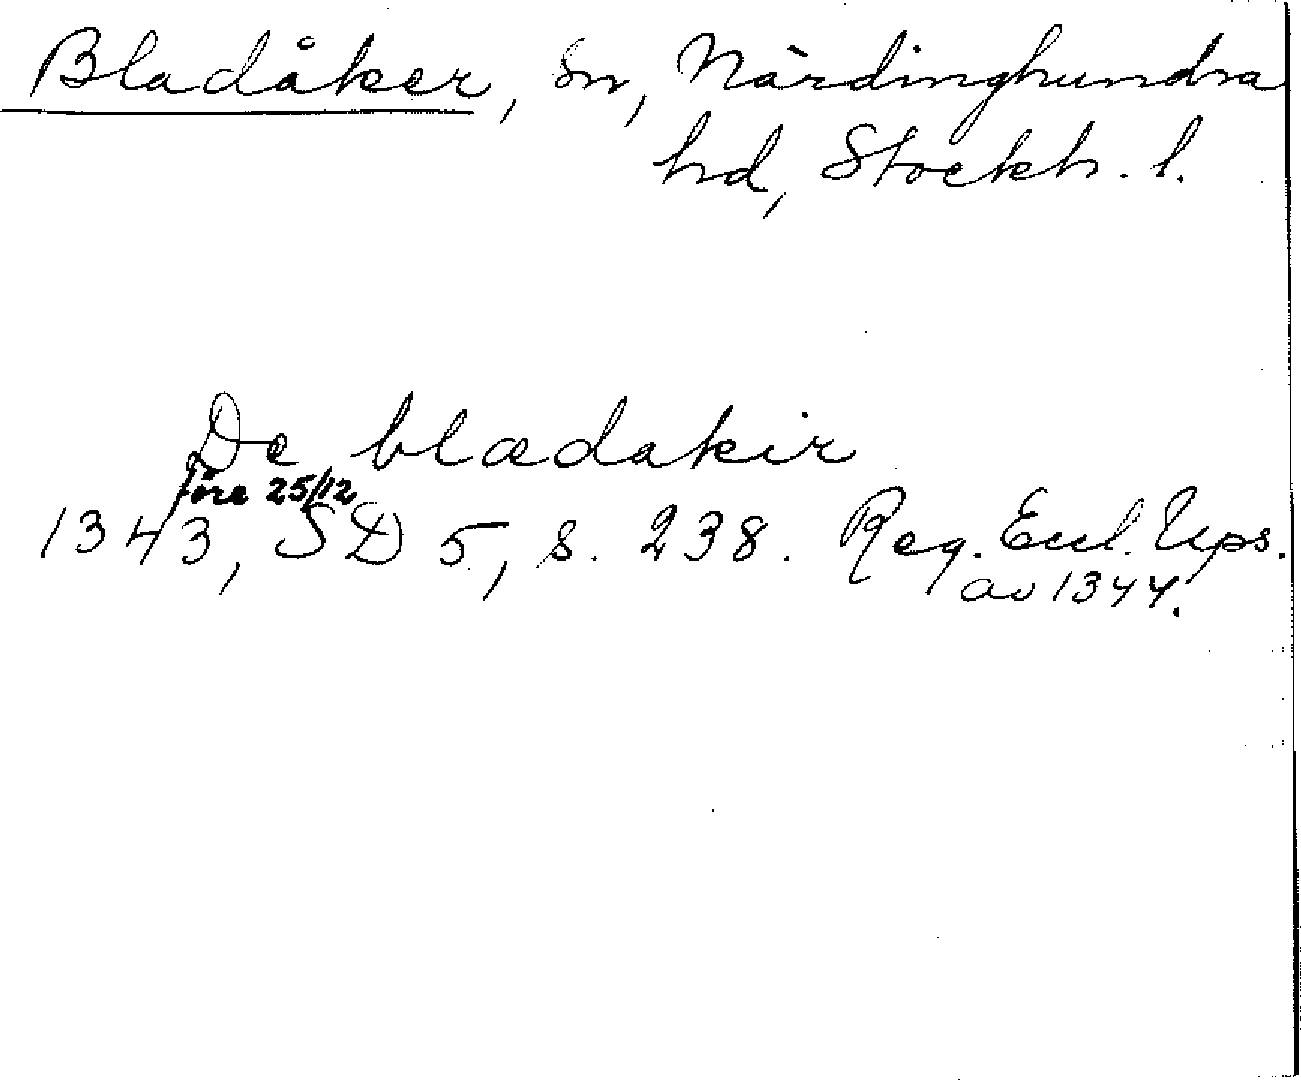 Bladåker, sn, Närdinghundra
hd, Stockh. l.
De blædakir
före 25/12
1343, SD 5, s. 238. Reg. Eccl. Ups.
av 1344.